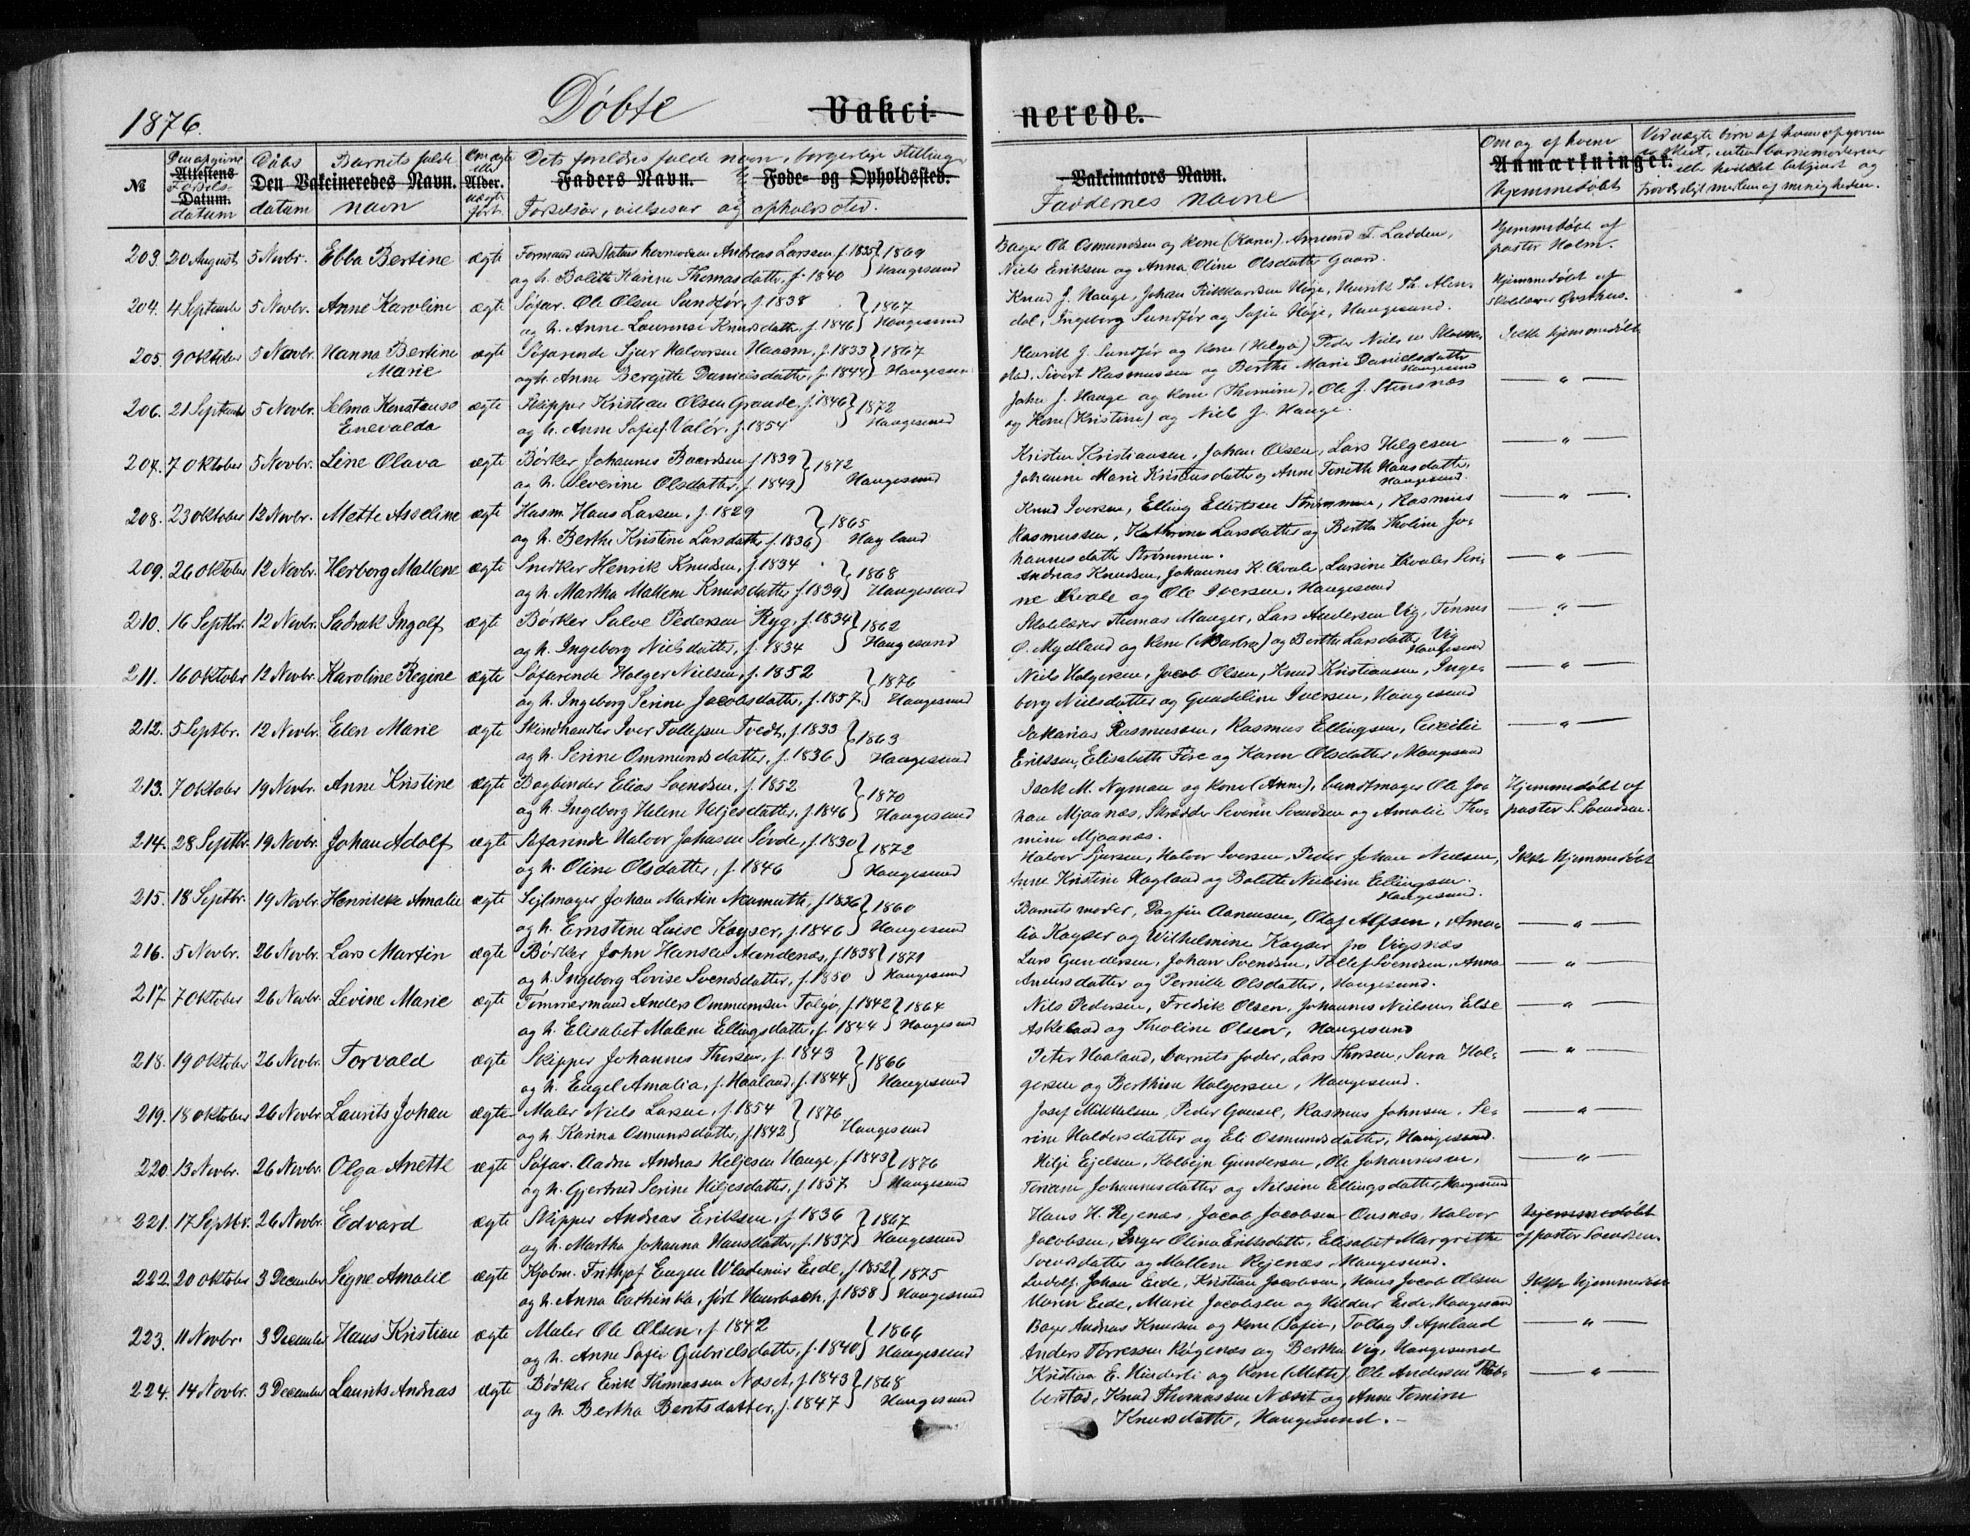 1876. Døbte Vakci- nerede.
№ Den opgivne Attestens Fødsels- Datum. datum
Døbs datum Den Vakcineredes Navn. Barnets fulde navn
Om ægte eller uægte født. Alder.
Det's forældres fulde navn, borgerlige stilling,
Faders Navn. Føde- og Opholdssted.
Fødselsår, vielsesår og opholdssted.
Vakcinators Navn.
Faddernes navne
Om og af hvem Anmærkninger. hjemmedøbt
203. 20 August 5 Novbr. Ebba Bertine ægte Formand ved Statens havnevæsen Andreas Larsen f. 1835 } 1869
og h. Bolette Karine Thomasdatter, f. 1840 Haugesund
Bager Ole Osmundsen og kone (Karen) Amund T. Ladden,
Niels Eriksen og Anna Oline Olsdatter Gaard.
Hjemmedøbt af
pastor Holm.
204. 4 September 5 Novbr. Anne Karoline ægte Søfar. Ole Olsen Sundfør, f. 1838 } 1867
og h. Anne Laurense Knudsdatter, f. 1846 Haugesund
Knud J. Hauge, Johan Rikkardsen Høje, Henrik Th. Alen-
dal, Ingeborg Sundfør og Sofie Høje, Haugesund.
Hjemmedøbt af
skolelærer Gresthus.
205. 9 Oktober 5 Novbr. Hanna Bertine ægte Søfarende Sjur Halvorsen Haasm, f. 1833 } 1867
Marie og h. Anne Bergitte Danielsdatter, f. 1844 Haugesund
Henrik J. Sundfør og kone (Helga) Peder Niels
Sivert Rasmussen og Berthe Marie Danielsdatter
Haugesund
Ikke hjemmedøbt
206. 21 Septembr 5 Novbr. Selma Konstanse ægte Skipper Kristian Olsen Grande, f. 1846 } 1872
Enevalda og h. Anne Sofie f. Valør, f. 1854 Haugesund
John J. Hauge og kone (Thomine), Ole J. Stensnæs
og kone (Kristine) og Niels J. Hauge.
— " —
207. 7 Oktober 5 Novbr. Line Olava ægte Bødker Johannes Baardsen f. 1839 } 1872
og h. Severine Olsdatter, f. 1849 Haugesund
Kristen Kristiansen, Johan Olsen, Lars Helgesen
Johanne Marie Kristensdatter og Anne Tenette Hansdatter,
Haugesund.
— " —
208. 23 Oktober 12 Novbr. Mette Asseline ægte Husm. Hans Larsen, f. 1829 } 1865
og h. Berthe Kristine Larsdatter f. 1836 Hagland
Knud Iversen, Elling Ellertsen Strømmen, Rasmus
Rasmussen, Kathrine Larsdatter og Berthe Tholine Jo-
hannesdatter Strømmen.
— " —
209. 26 Oktober 12 Novbr. Herborg Mallene ægte Snedker Henrik Knudsen, f. 1834 } 1868
og h. Martha Mallene Knudsdatter f. 1839 Haugesund
Andreas Knudsen, Johannes K. Kvale, Larsine Kvale, Seri-
ne Kvale og Ole Iversen, Haugesund
— " —
210. 16 Septbr. 12 Novbr. Sadrak Ingolf ægte Bødker Salve Pedersen Ryg, f. 1834 } 1862
og h. Ingeborg Nielsdatter, f. 1834 Haugesund
Skolelærer Thomas Manger, Lars Andersen Vig, Tønnes
G. Mydland og kone (Martra) og Berthe Larsdatter Vig
Haugesund
— " —
211. 16 Oktober 12 Novbr. Karoline Regine ægte Søfarende Holger Nielsen, f. 1852 } 1876
og h. Ingeborg Serine Jacobsdatter, f. 1857. Haugesund
Niels Holgersen, Jacob Olsen, Knud Kristiansen, Inge-
borg Nielsdatter og Gundeline Iversen, Haugesund
— " —
212. 5 Septbr. 12 Novbr. Elen Marie ægte Skindhandler Iver Tollefsen Tvedt, f. 1833 } 1863
og h. Serine Ommundsdatter, f. 1836 Haugesund
Sakarias Rasmussen, Rasmus Ellingsen, Cecilie
Eriksen, Elisabeth Fire og Karen Olsdatter Haugesund
— " —
213. 7 Oktober 19 Novbr. Anne Kristine ægte Bogbinder Elias Svendsen, f. 1852 } 1870
og h. Ingeborg Helene Heljesdatter, f. 1846 Haugesund
Isak M. Nyman og kone (Anne), bundtmager Ole Jo-
han Mjaanæs, Skrædder Severin Svendsen og Amalie Tho-
mine Mjaanæs.
Hjemmedøbt af
pastor S. Svendsen.
214. 28 Septbr. 19 Novbr. Johan Adolf ægte Søfarende Halvor Johnsen Søvde, f. 1830 } 1872
og h. Oline Olsdatter, f. 1846 Haugesund
Halvor Sjursen, Halvor Iversen, Peder Johan Nielsen,
Anne Kristine Hagland og Bolette Nielsine Ellingsen.
Haugesund.
Ikke hjemmedøbt
215. 18 Septbr. 19 Novbr. Henrikke Amalie ægte Sejlmager Johan Martin Neumuth, f. 1836 } 1860
og h. Ernstine Lovise Kayser, f. 1846 Haugesund
Barnets moder, Dagfin Aanensen, Olaf Alfsen, Ama-
lia Kayser og Wilhelmine Kayser fra Vigsnæs
— " —
216. 5 Novbr. 26 Novbr. Lars Martin ægte Bødker John Hansen Aandenæs, f. 1838 } 1871
og h. Ingeborg Lovise Svendsdatter, f. 1850 Haugesund
Lars Gundersen, Johan Svendsen, Tollef Svendsen, Anna
Andersdatter og Pernille Olsdatter, Haugesund.
— " —
217. 7 Oktober 26 Novbr. Levine Marie ægte Tømmermand Anders Ommundsen Tolgø, f. 1842 } 1864
og h. Elisabet Malene Ellingsdatter, f. 1844 Haugesund
Nils Pedersen, Fredrik Olsen, Johannes Nielsen, Else
Askeland og Tholine Olsen, Haugesund
— " —
218. 19 Oktober 26 Novbr. Torvald ægte Skipper Johannes Thorsen, f. 1843 } 1866
og h. Engel Amalia, f. Haaland, f. 1844 Haugesund
Peter Haaland, barnets fader, Lars Thorsen, Sara Hol-
gersen og Berthine Holgersen, Haugesund.
— " —
219. 18 Oktober 26 Novbr. Laurits Johan ægte Maler Niels Larsen, f. 1854 } 1876
og h. Karina Osmundsdatter, f. 1842 Haugesund
Josef Mikkelsen, Peder Gausel, Rasmus Johnsen, Se-
rine Haldersdatter og Eli Osmundsdatter, Haugesund.
— " —
220. 13 Novbr. 26 Novbr. Olga Anette ægte Søfar. Aadne Andreas Heljesen Hauge, f. 1843 } 1876
og h. Gjertrud Serine Heljesdatter, f. 1857. Haugesund
Helje Ejelsen, Kolbejn Gundersen, Ole Johannesen,
Johannesdatter og Nilsine Ellingsdatter, Haugesund
— " —
221. 17 Septbr. 26 Novbr. Edvard ægte Skipper Andreas Eriksen, f. 1836 } 1867
og h. Martha Johanna Hansdatter, f. 1837 Haugesund
Hans H. Rejenæs, Jacob Jacobsen Ousnæs, Halvor
Jacobsen, Inger Olina Eriksdatter, Elisabet Margrithe
Svendsdatter og Mallene Rejenæs, Haugesund.
Hjemmedøbt
af pastor Svendsen.
222. 20 Oktober 3 December Signe Amalie ægte Kjøbm. Frithjof Eugen Wlademir Eide, f. 1852 } 1875
og h. Anna Cathinka, født Haurbach, f. 1858 Haugesund
Ludolf Johan Eide, Kristian Jacobsen, Hans Jacob Olsen
Karen Eide, Marie Jacobsen og Hildur Eide, Haugesund
Ikke hjemmedøbt
223. 11 Novbr. 3 December Hans Kristian ægte Maler Ole Olsen, f. 1842 } 1866
og h. Anne Sofie Gabrielsdatter, f. 1840 Haugesund
Bager Andreas Knudsen og kone (Sofie), Tollag
Anders Torressen Røgenæs og Berthe Vig, Haugesund
— " —
224. 14 Novbr. 3 December Laurits Andreas ægte Bødker Erik Thomassen Næset, f. 1843 } 1868
og h. Bertha Berntsdatter, f. 1847 Haugesund
Kristian E. Hinderli og kone (Mette), Ole Andersen Røb-
berstad, Knud Thomassen Næset og Anne Tomine
Knudsdatter, Haugesund.
— " —